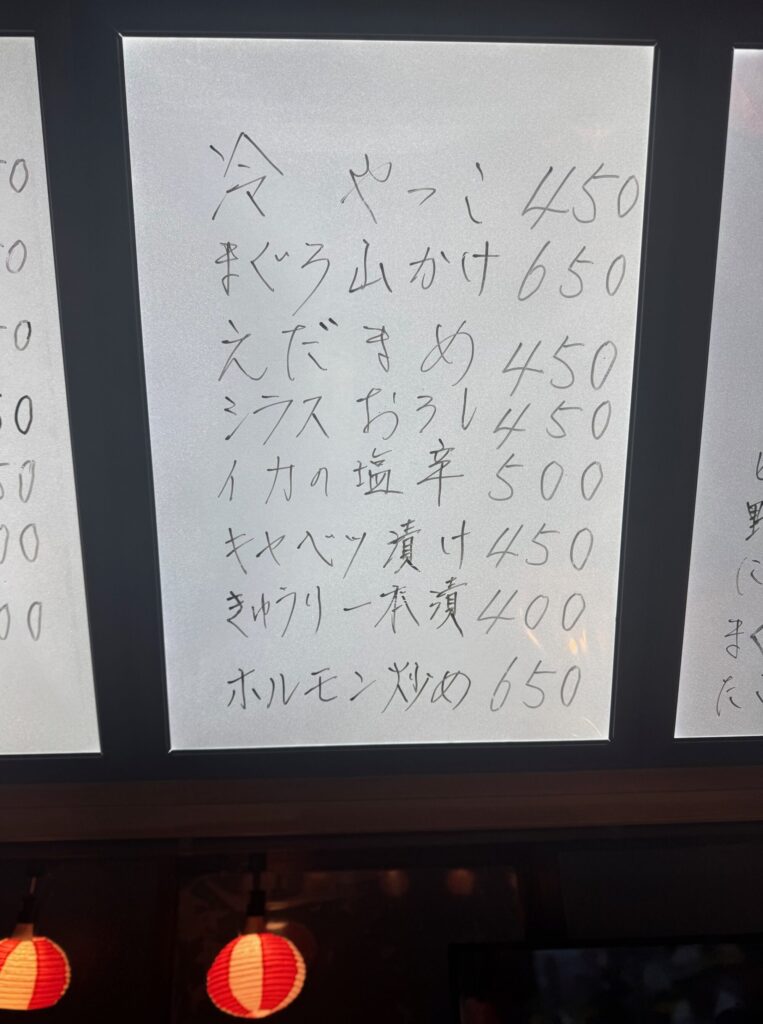 冷 やっこ 450
まぐろ山かけ 650
えだまめ 450
シラスおろし 450
イカの塩辛 500
キャベツ漬け 450
きゅうり一本漬 400
ホルモン炒め 650